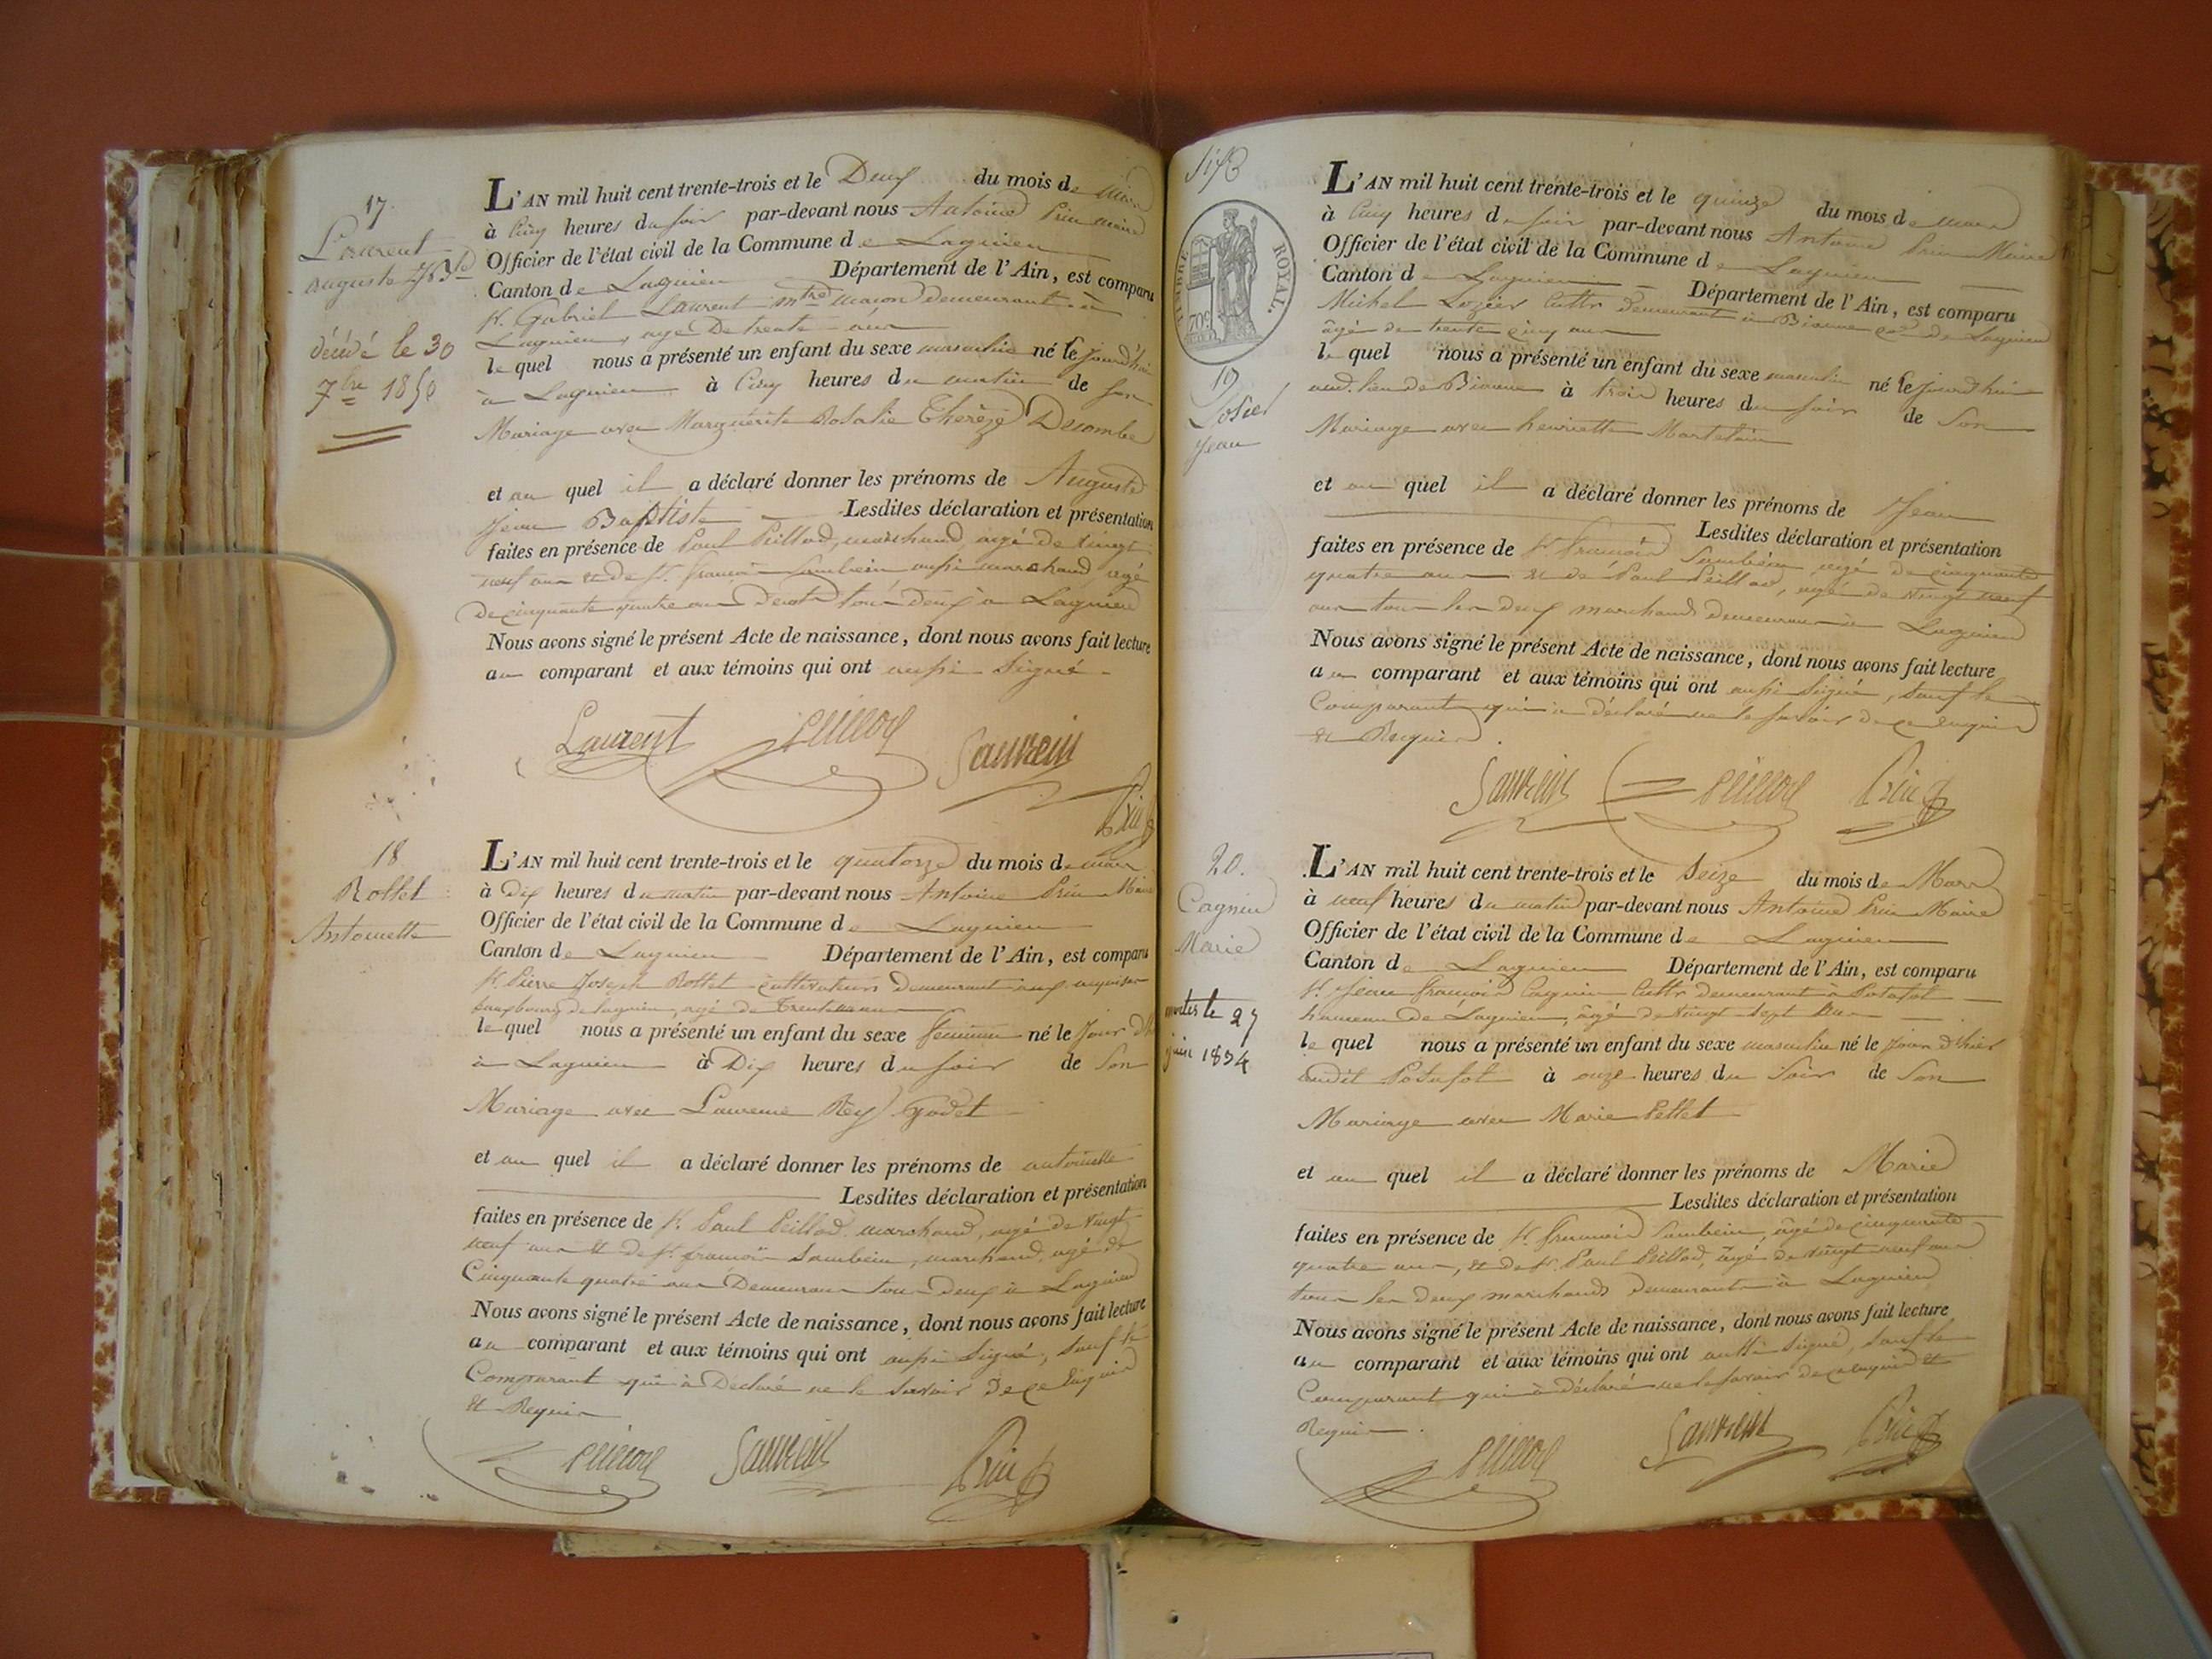 17.
Laurent
auguste J. Bte
décédé le 30
7bre 1850
L'AN mil huit cent trente-trois et le Deux du mois de Mars
à Cinq heures du soir par-devant nous Antoine Prin maire
Officier de l'état civil de la Commune de Lagnieu
Canton de Lagnieu Département de l'Ain, est comparu
Sr. Gabriel Laurent mtre maçon demeurant à
Lagnieu, agé De trente ans
le quel nous a présenté un enfant du sexe masculin né le jourd'hui
à Lagnieu à Cinq heures du matin de son
Mariage avec Marguérite Rosalie Therèze Decombe
et au quel il a déclaré donner les prénoms de Auguste
Jean Baptiste Lesdites déclaration et présentation
faites en présence de Paul Peillod, marchand agé de vingt
neuf ans et de Sr. françois aussi marchand agé
De cinquante quatre ans tous Deux à Lagnieu
Nous avons signé le présent Acte de naissance, dont nous avons fait lecture
au comparant et aux témoins qui ont aussi Signé
Laurent Peillod
Prin
18
Rollet
Antoinette
L'AN mil huit cent trente-trois et le quatorze du mois de Mars
à Dix heures du matin par-devant nous Antoine Prin Maire
Officier de l'état civil de la Commune de Lagnieu
Canton de Lagnieu Département de l'Ain, est comparu
Sr. Pierre Joseph Rollet cultivateur Demeurant aux
fauxbourg de lagnieu, agé de Trente ans
le quel nous a présenté un enfant du sexe feminin né le Jour d'h
à Lagnieu à Dix heures du soir de Son
Mariage avec Laurence Rey Godet
et au quel il a déclaré donner les prénoms de antoinette
Lesdites déclaration et présentation
faites en présence de Sr. Paul Peillod marchand, agé de vingt
neuf ans et de Sr. françois marchand, agé de
Cinquante quatre ans Demeurans tous Deux à Lagnieu
Nous avons signé le présent Acte de naissance, dont nous avons fait lecture
au comparant et aux témoins qui ont aussi Signé, Sauf le
Comparant qui à Declaré ne le Savoir de ce Enquis
et Requis
Peillod Prin
TIMBRE ROYAL.
70c
19
Losier
Jean
L'AN mil huit cent trente-trois et le quinze du mois de mars
à Cinq heures du soir par-devant nous Antoine Prin Maire
Officier de l'état civil de la Commune de Lagnieu
Canton de Lagnieu Département de l'Ain, est comparu
Michel Lozier Cultr demeurant à de Lagnieu
âgé de trente cinq ans
le quel nous a présenté un enfant du sexe masculin né le jourd'hui
aud. lieu de à trois heures du soir de Son
Mariage avec henriette Martelain
et au quel il a déclaré donner les prénoms de Jean
Lesdites déclaration et présentation
faites en présence de Sr. françois agé de cinquante
quatre ans et de Paul Peillod, agé de vingt neuf
ans tous les deux marchands demeurans à Lagnieu
Nous avons signé le présent Acte de naissance, dont nous avons fait lecture
au comparant et aux témoins qui ont aussi Signé, Sauf le
Comparant qui a déclaré ne le savoir de ce enquis
et Requis.
Peillod Prin
20.
Cagnin
Marie
27
juin 1834
L'AN mil huit cent trente-trois et le Seize du mois de Mars
à neuf heures du matin par-devant nous Antoine Prin Maire
Officier de l'état civil de la Commune de Lagnieu
Canton de Lagnieu Département de l'Ain, est comparu
Sr. Jean françois Cagnin Cultr demeurant à Posafol
hameau de Lagnieu, âgé de vingt Sept ans
le quel nous a présenté un enfant du sexe masculin né le jour d'hier
audit Posafol à onze heures du Soir de Son
Mariage avec Marie Pellet
et au quel il a déclaré donner les prénoms de Marie
Lesdites déclaration et présentation
faites en présence de Sr. françois âgé de cinquante
quatre ans, et de Sr. Paul Peillod, âgé de vingt neuf ans
tous les deux marchands Demeurants à Lagnieu
Nous avons signé le présent Acte de naissance, dont nous avons fait lecture
au comparant et aux témoins qui ont aussi Signé, Sauf le
Comparant qui à déclaré ne le savoir de ce enquis et
Requis.
Peillod Prin